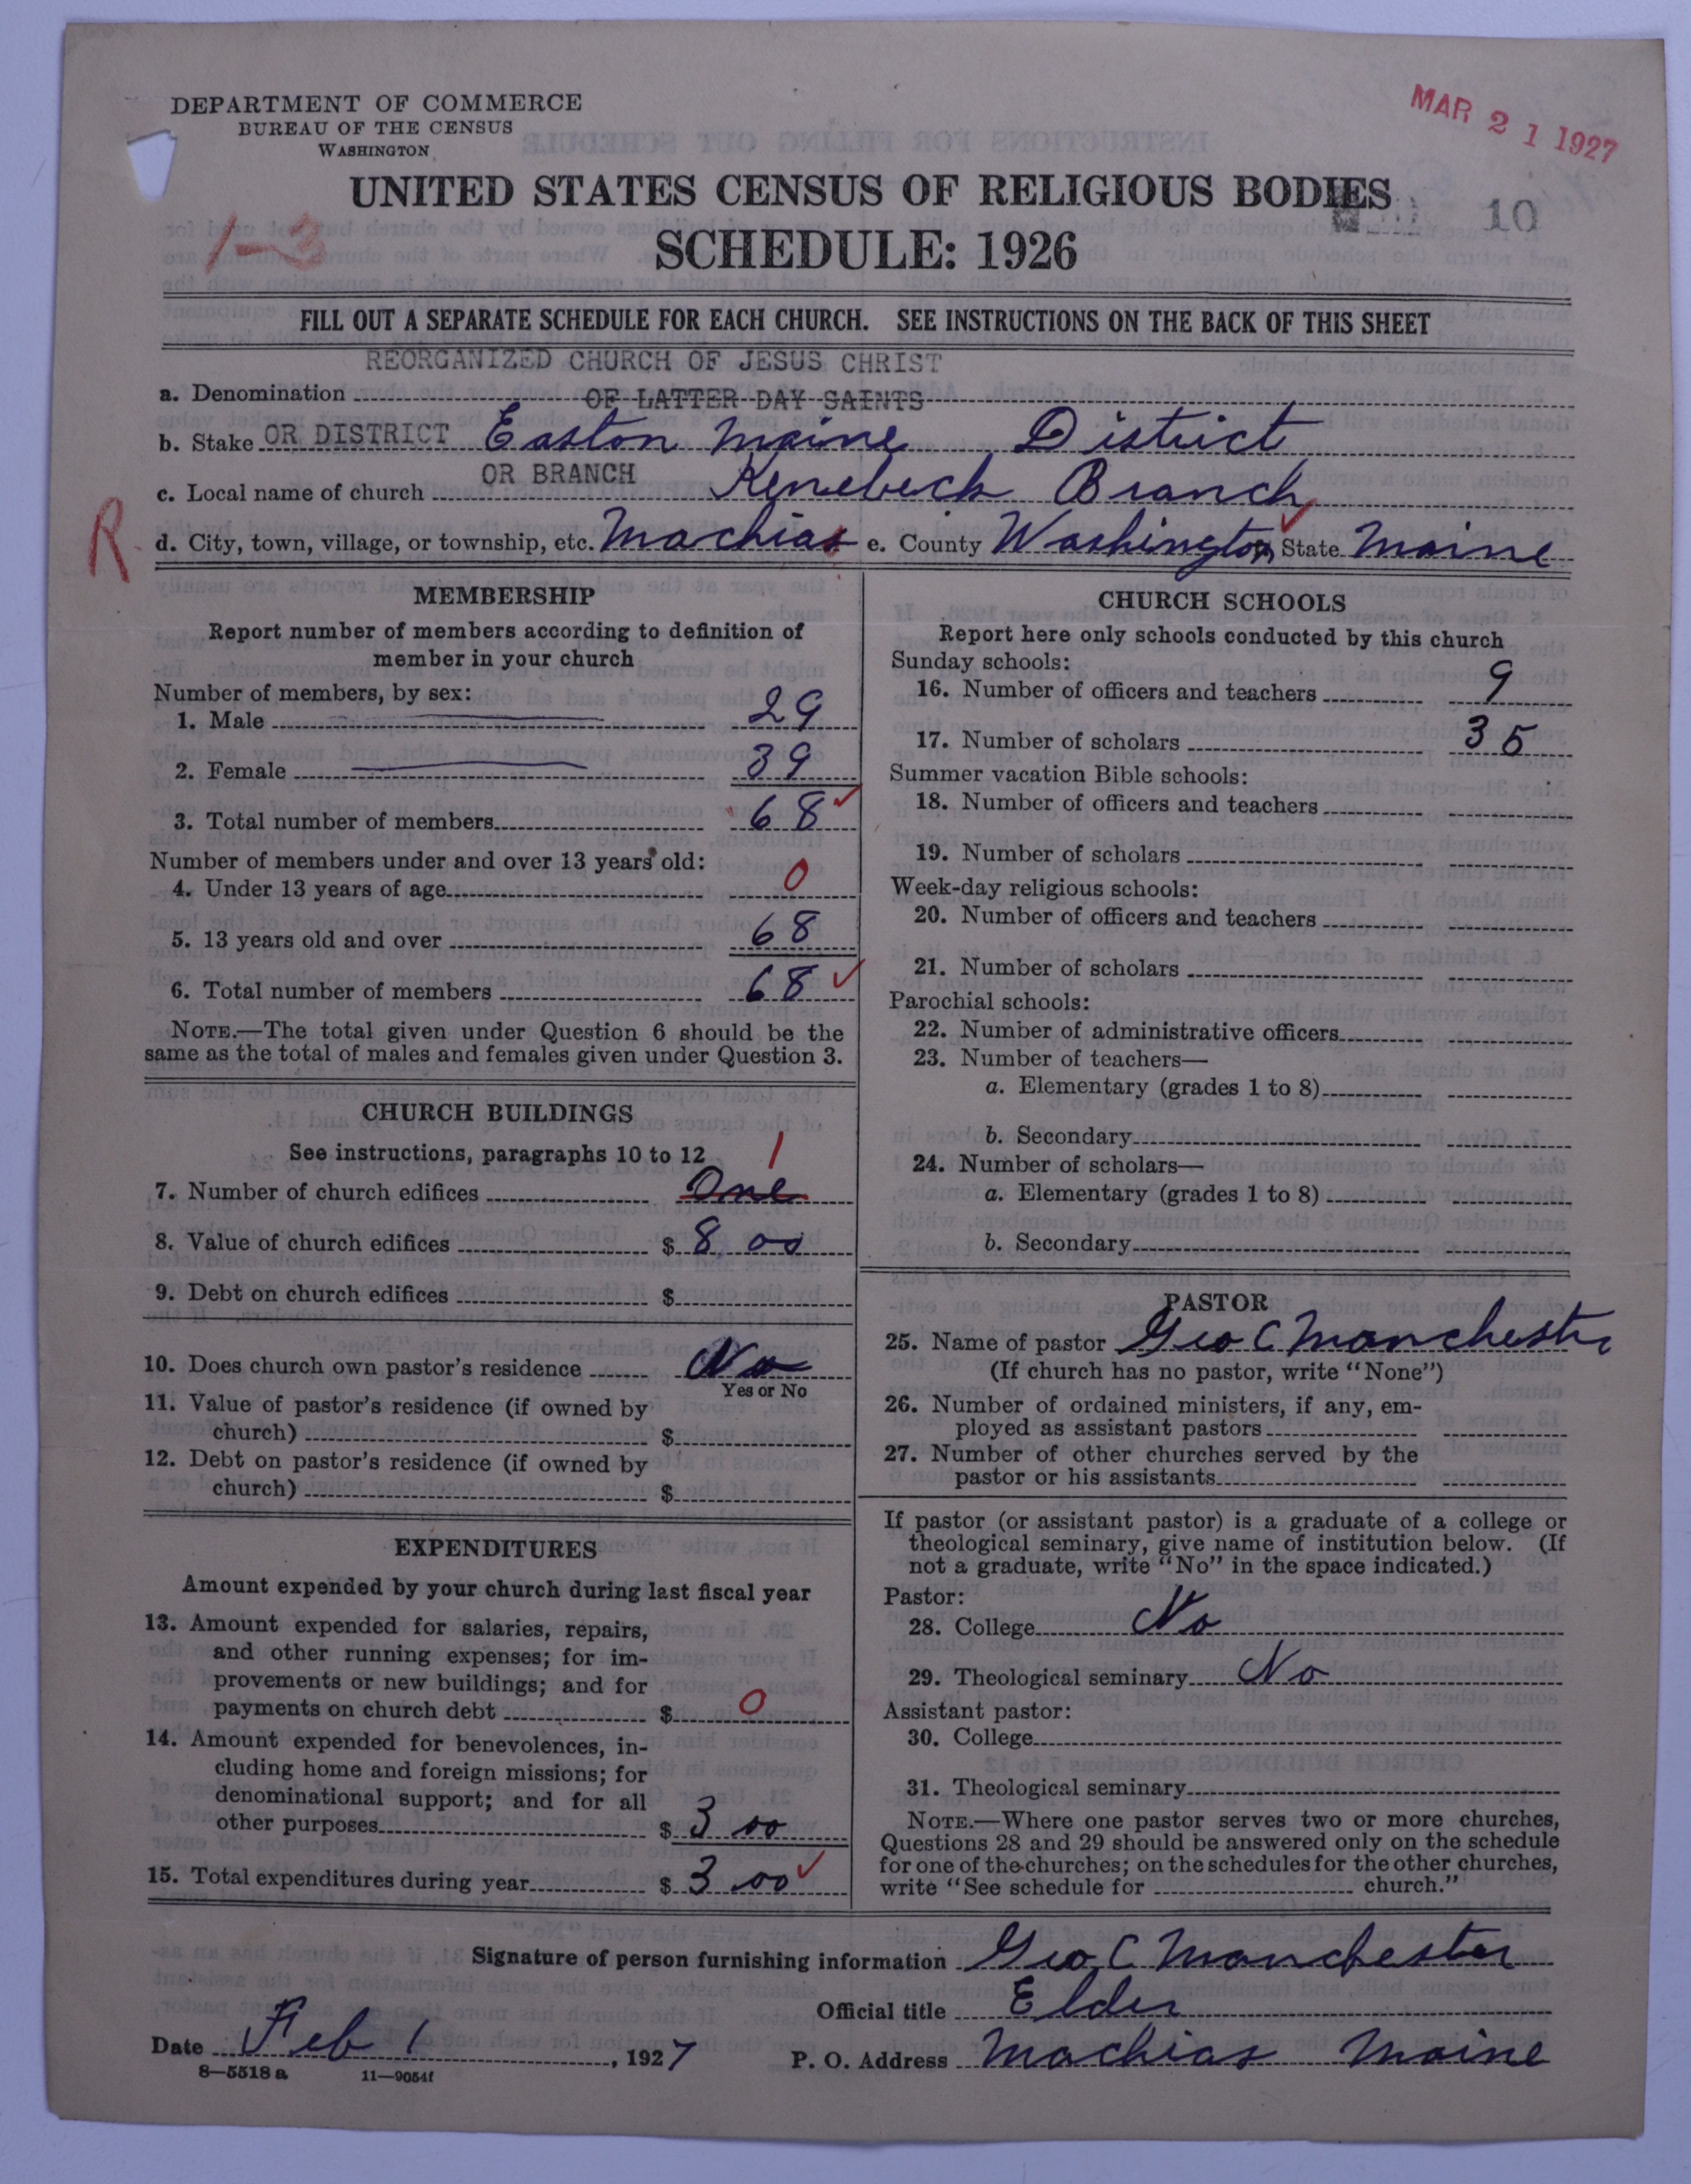 DEPARTMENT OF COMMERCE
BUREAU OF THE CENSUS
WASHINGTON
MAR 21 1927
UNITED STATES CENSUS OF RELIGIOUS BODIES
10
1-3
SCHEDULE: 1926
FILL OUT A SEPARATE SCHEDULE FOR EACH CHURCH. SEE INSTRUCTIONS ON THE BACK OF THIS SHEET
REORGANIZED CHURCH OF JESUS CHRIST
a. Denomination OF LATTER DAY SAINTS
b. Stake OR DISTRICT Easton Maine District
c. Local name of church OR BRANCH Kenebeck Branch
R
d. City, town, village, or township, etc. Machias e. County Washington State Maine
MEMBERSHIP
Report number of members according to definition of
member in your church
Number of members, by sex:
1. Male 29
2. Female 39
3. Total number of members 68
Number of members under and over 13 years old:
4. Under 13 years of age 0
5. 13 years old and over 68
6. Total number of members 68
NOTE.—The total given under Question 6 should be the
same as the total of males and females given under Question 3.
CHURCH BUILDINGS
See instructions, paragraphs 10 to 12
1
7. Number of church edifices One
8. Value of church edifices $ 8 00
9. Debt on church edifices $
10. Does church own pastor's residence No
Yes or No
11. Value of pastor's residence (if owned by
church) $
12. Debt on pastor's residence (if owned by
church) $
EXPENDITURES
Amount expended by your church during last fiscal year
13. Amount expended for salaries, repairs,
and other running expenses; for im-
provements or new buildings; and for
payments on church debt $ 0
14. Amount expended for benevolences, in-
cluding home and foreign missions; for
denominational support; and for all
other purposes $ 3 00
15. Total expenditures during year $ 3.00
CHURCH SCHOOLS
Report here only schools conducted by this church
Sunday schools:
16. Number of officers and teachers 9
17. Number of scholars 35
Summer vacation Bible schools:
18. Number of officers and teachers
19. Number of scholars
Week-day religious schools:
20. Number of officers and teachers
21. Number of scholars
Parochial schools:
22. Number of administrative officers
23. Number of teachers—
a. Elementary (grades 1 to 8)
b. Secondary
24. Number of scholars—
a. Elementary (grades 1 to 8)
b. Secondary
PASTOR
25. Name of pastor Geo C Manchester
(If church has no pastor, write "None")
26. Number of ordained ministers, if any, em-
ployed as assistant pastors
27. Number of other churches served by the
pastor or his assistants
If pastor (or assistant pastor) is a graduate of a college or
theological seminary, give name of institution below. (If
not a graduate, write "No" in the space indicated.)
Pastor:
28. College No
29. Theological seminary No
Assistant pastor:
30. College
31. Theological seminary
NOTE.—Where one pastor serves two or more churches,
Questions 28 and 29 should be answered only on the schedule
for one of the churches; on the schedules for the other churches,
write "See schedule for church."
Signature of person furnishing information Geo. C Manchester
Official title Elder
Date Feb 1, 1927 P. O. Address Machias Maine
8—5518 a 11—9054f